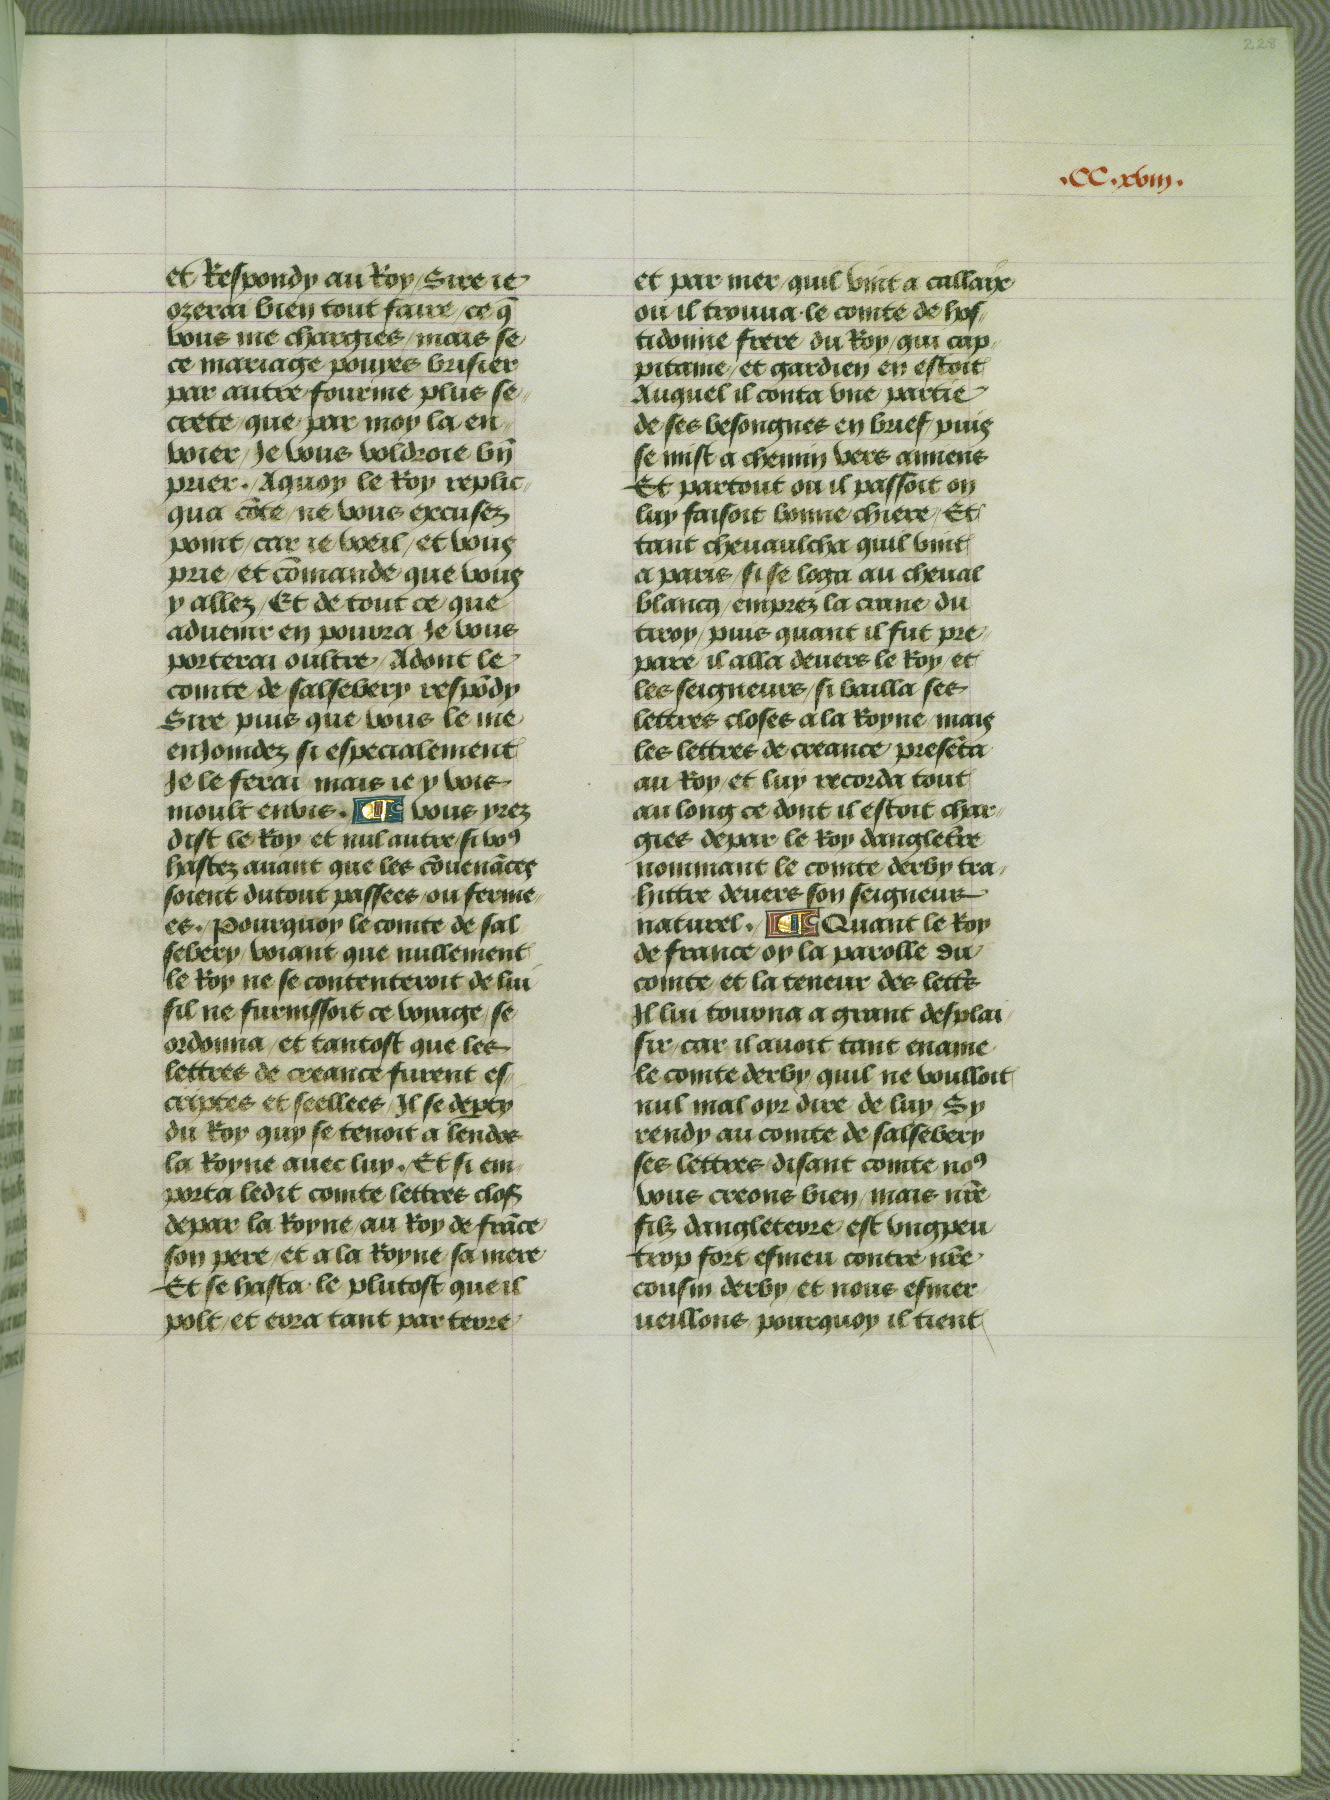 228
.CC.xviij.
et Respondy au Roy / Sire ie
ozerai bien tout faire / ce q̄
vous me chargies / mais se
ce mariage pouyes brisier
par autre fourme plus se /
crete / que par moy la en /
voier / Je vous voldroie bn̄
prier . Aquoy le Roy replic /
qua cōte / ne vous excusez
point / car ie voeil / et vous
prie / et cōmande que vous
y allez / Et de tout ce que
aduenir en pourra Je vous
porterai oultre / Adont le
comte de salsebery respōdy
Sire puis que vous le me
enjoindez si especialement
Je le ferai mais ie y vois
moult envis . ¶ vous yrez
dist le Roy et nul autre / si voꝰ
hastez auant que les cōuenāces
soient dutout passees ou ferme /
es . Pourquoy le comte de sal
sebery / voiant que nullement
le Roy ne se contenteroit de lui
sil ne furnissoit ce voyage / se
ordonna / et tantost que les
lettres de creance furent es /
criptes et seellees / Il se depty
du Roy quy se tenoit a lendos
la Royne auec luy . Et si em
porta ledit comte lettres closes
depar la Royne / au Roy de frāce
son pere / et a la Royne sa mere
Et se hasta le plutost que il
polt / et erra tant par terre
et par mer / quil vint a callaix
ou il trouua le comte de hos /
tidonne frere du Roy / qui cap /
pitaine / et gardien en estoit
Auquel il conta vne partie
de ses besongnes en brief puis
se mist a chemin vers amiens
Et partout ou il passoit on
luy faisoit bonne chiere / Et
tant cheuaulcha quil vint
a paris / si se loga au cheual
blancq / emprez la crane du
tiroy / puis quant il fut pre /
pare il alla deuers le Roy / et
les seigneurs / si bailla ses
lettres closes a la Royne / mais
les lettres de creance presēta
au Roy / et luy recorda tout
au long ce dont il estoit char /
gies depar le Roy dangletre
nommant le comte derby tra /
hittre deuers son seigneur
naturel . ¶ Quant le Roy
de france oy la parolle du
comte et la teneur des lettrs
Il lui tourna a grant desplai /
sir / car il auoit tant ename
le comte derby quil ne voulloit
nul mal oyr dire de luy / Sy
rendy au comte de salsebery
ses lettres / disant comte noꝰ
vous creons bien / mais nr̄e
filz dangleterre est vng peu
trop fort esmeu contre nr̄e
cousin derby / et nous esmer
ueillons pourquoy il tient